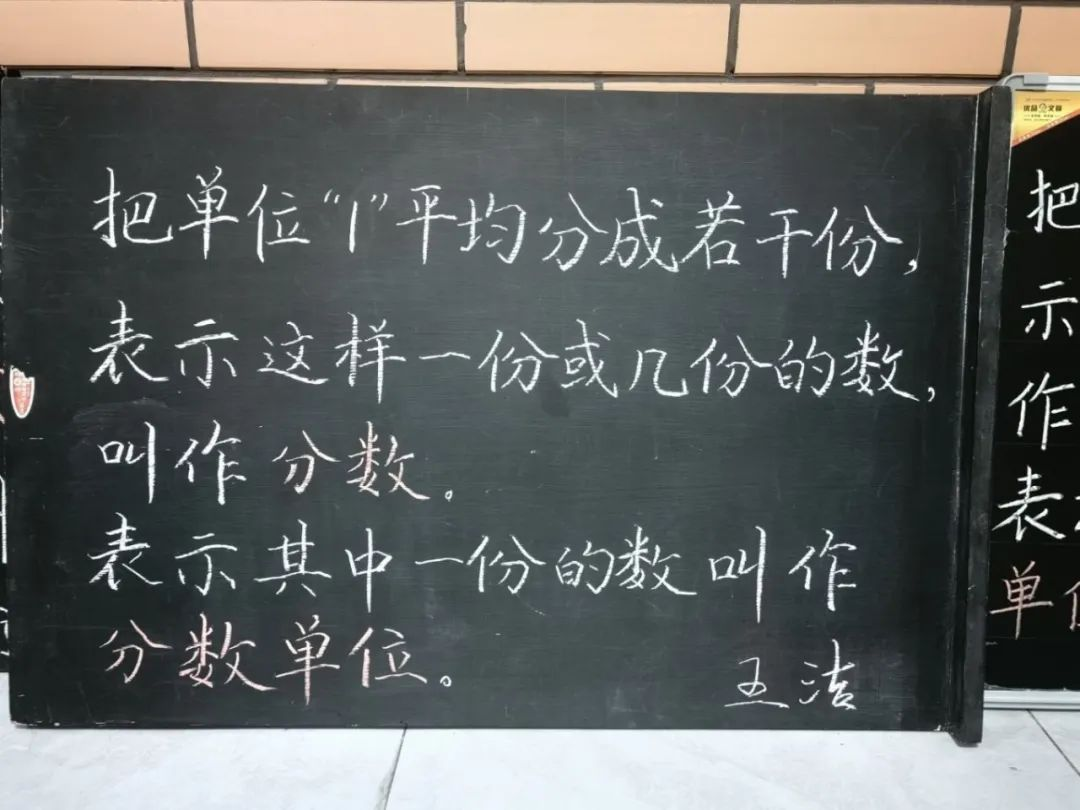 把单位“1”平均分成若干份,
表示这样一份或几份的数,
叫作分数。
表示其中一份的数叫作
分数单位。
王洁
把
示
作
表
单位